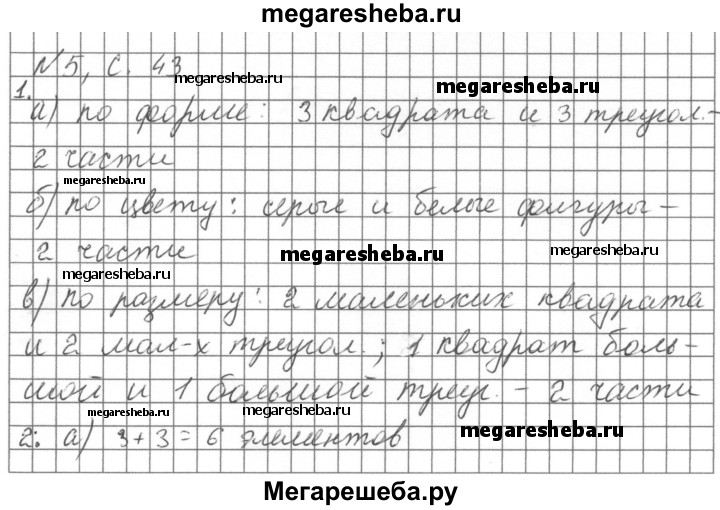 megaresheba.ru
№5, с. 43
megaresheba.ru
megaresheba.ru
1.
а) по форме: 3 квадрата и 3 треугол.-
2 части
megaresheba.ru
б) по цвету: серые и белые фигуры –
2 части
megaresheba.ru
megaresheba.ru
megaresheba.ru
в) по размеру: 2 маленьких квадрата
и 2 мал-х треугол.; 1 квадрат боль-
шой и 1 большой треуг. – 2 части
megaresheba.ru
megaresheba.ru
megaresheba.ru
2: а) 3+3=6 элементов
Мегарешеба.ру